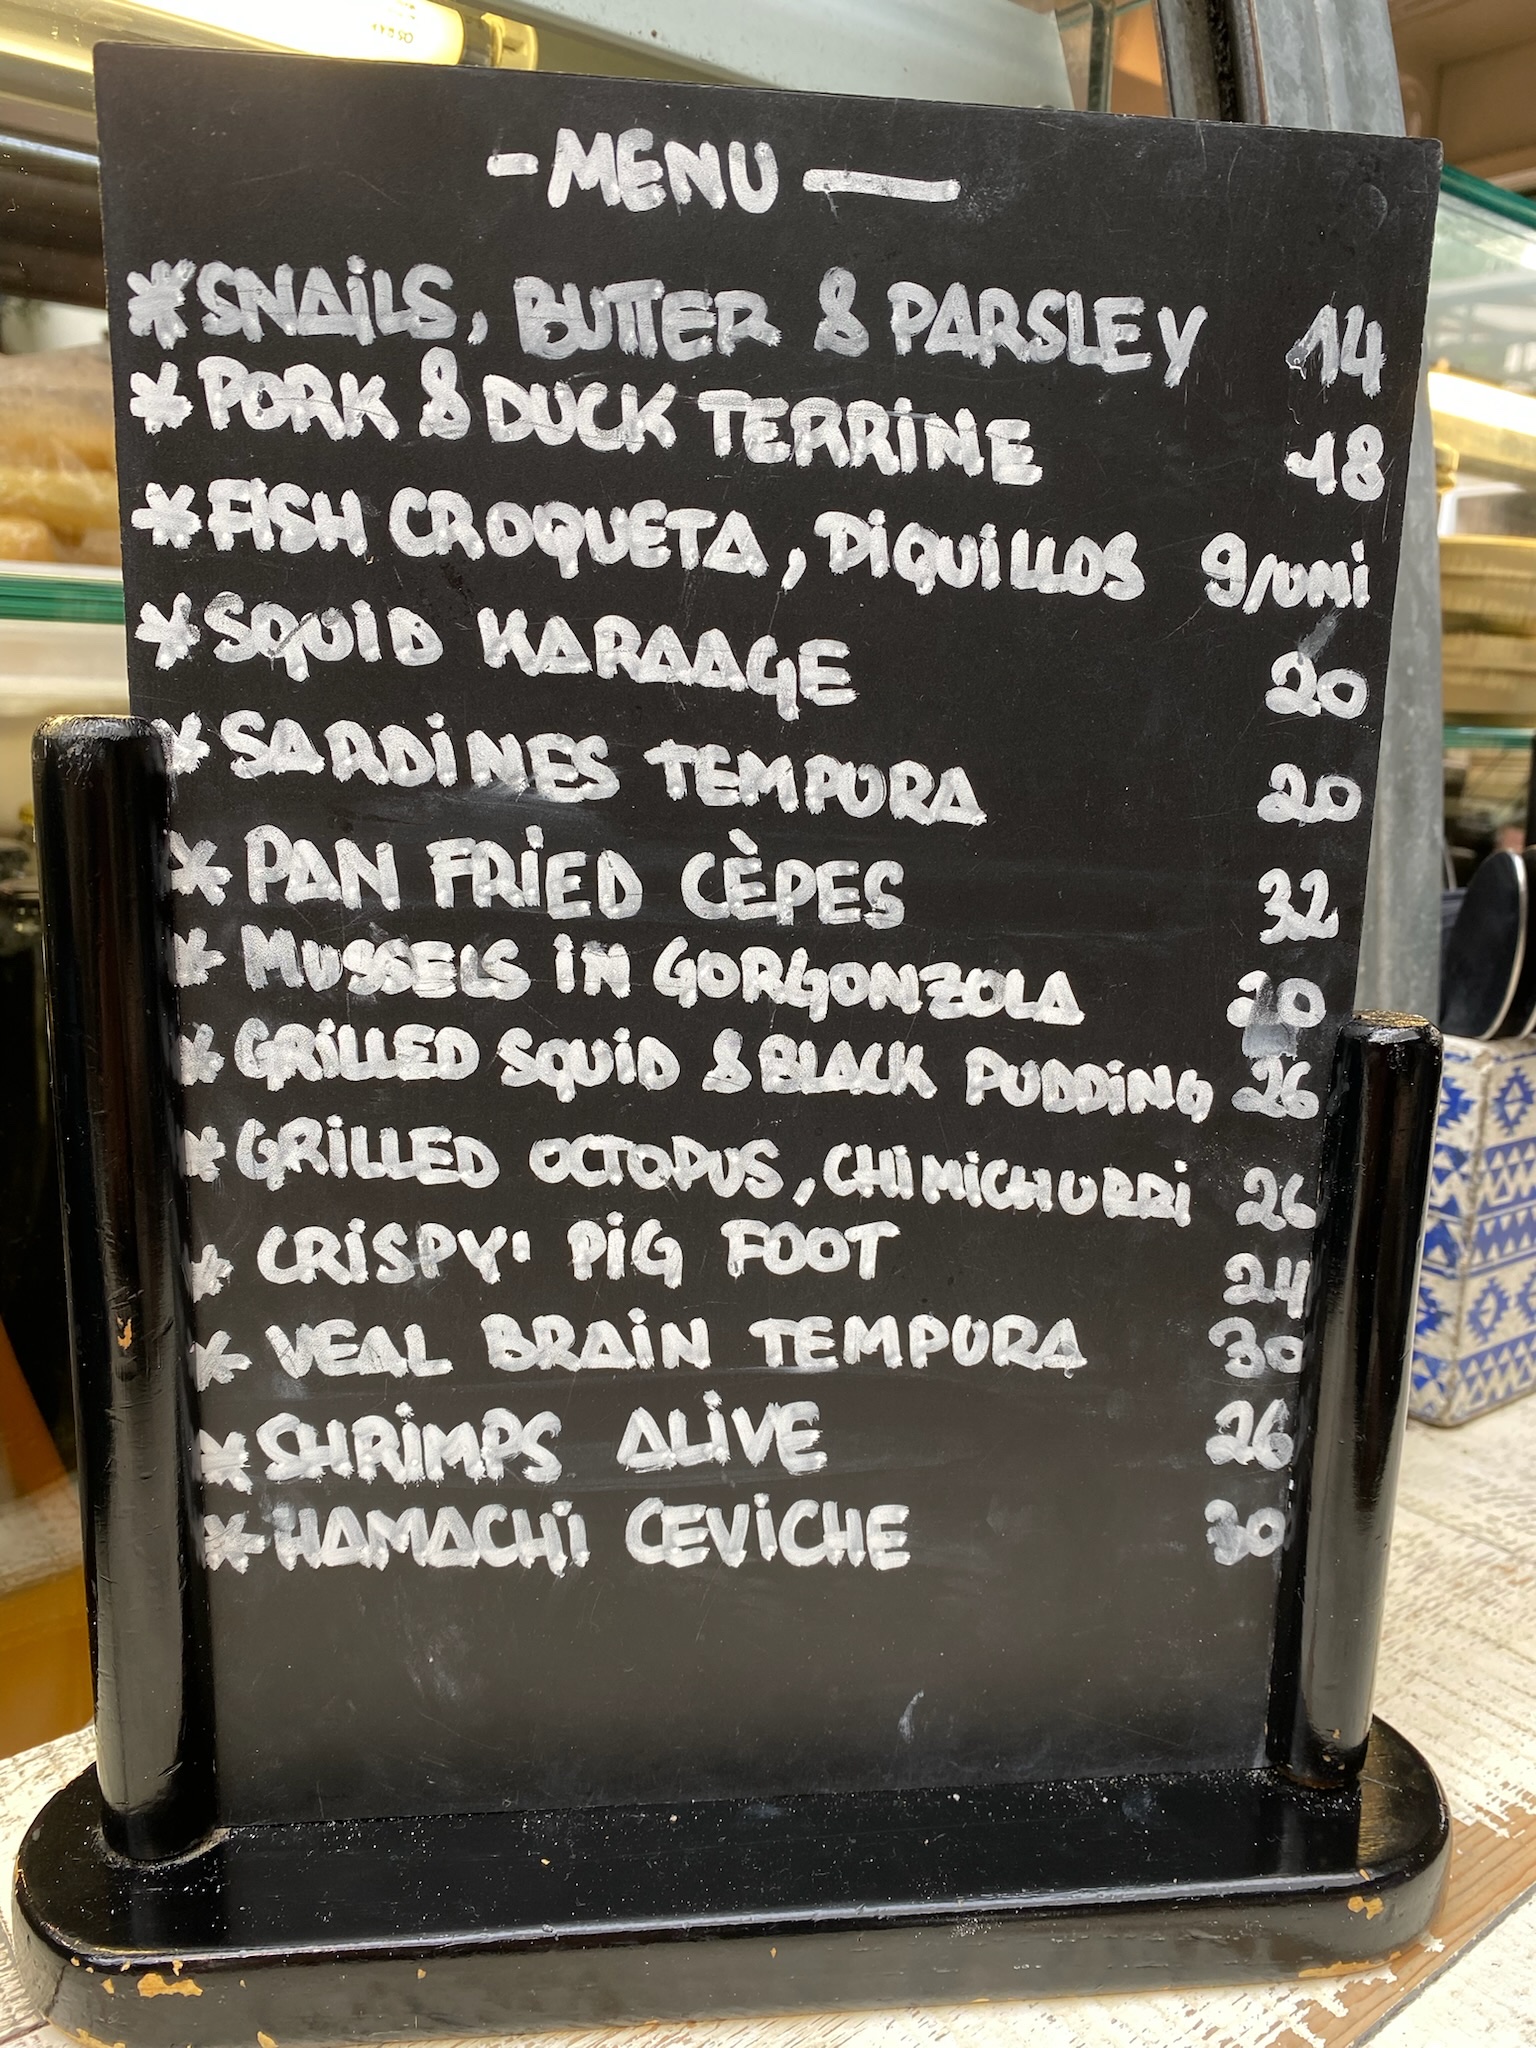 - MENU —
* SNAILS, BUTTER & PARSLEY 14
* PORK & DUCK TERRINE 18
* FISH CROQUETA, PIQUILLOS 9/UNI
* SQUID KARAAGE 20
* SARDINES TEMPURA 20
* PAN FRIED CÈPES 32
* MUSSELS IN GORGONZOLA 20
* GRILLED SQUID & BLACK PUDDING 26
* GRILLED OCTOPUS, CHIMICHURRI 26
* CRISPY PIG FOOT 24
* VEAL BRAIN TEMPURA 30
* SHRIMPS ALIVE 26
* HAMACHI CEVICHE 30